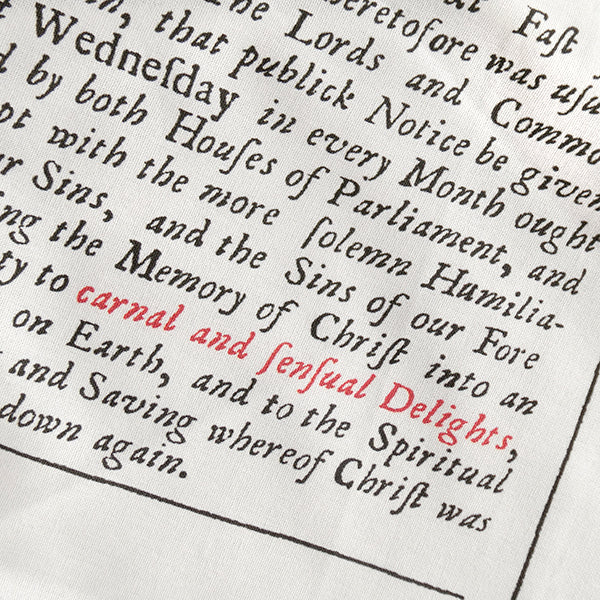 Faſt
heretofore was uſu
The Lords and Commo
, that publick Notice be given
Wedneſday in every Month ought
d by both Houſes of Parliament, and
pt with the more ſolemn Humilia-
r Sins, and the Sins of our Fore
ng the Memory of Chriſt into an
ty to carnal and ſenſual Delights,
on Earth, and to the Spiritual
and Saving whereof Chriſt was
down again.